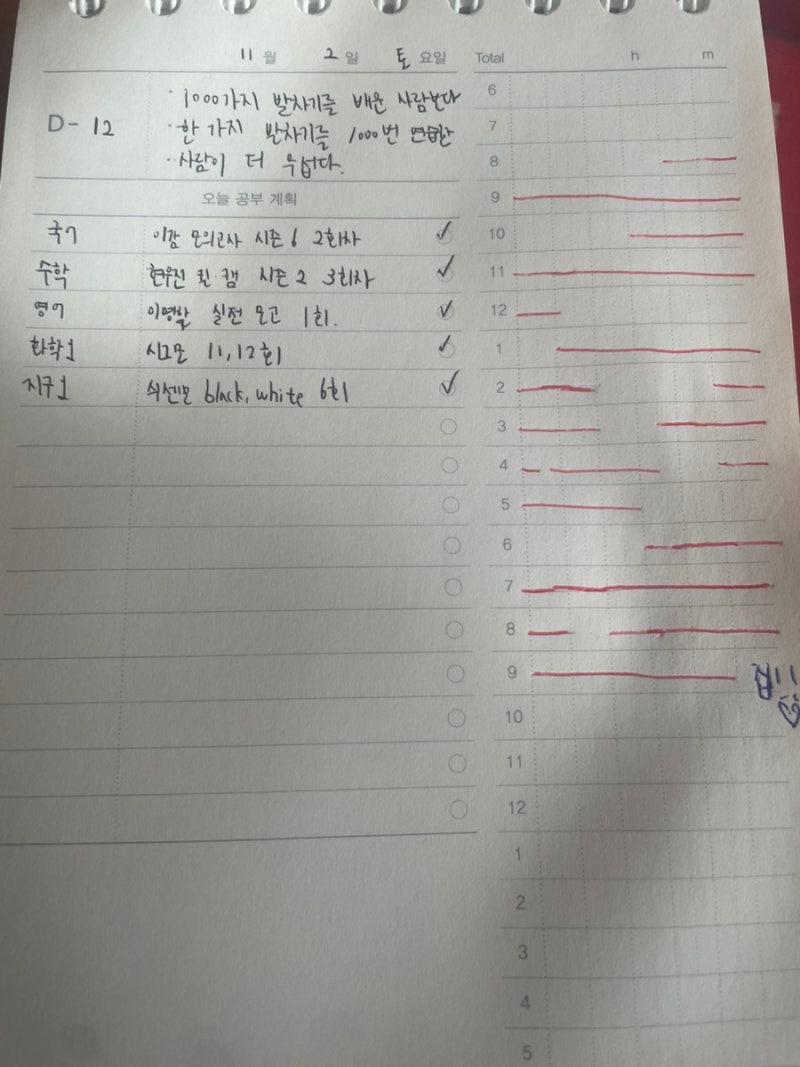 11월 2일 토요일
D- 12
· 1000가지 발차기를 배운 사람보다
· 한 가지 발차기를 1000번 연습한
· 사람이 더 무섭다.
오늘 공부 계획
국어 이감 모의고사 시즌 6 2회차
수학 현우진 킬·캠 시즌 2 3회차
영어 이명학 실전 모고 1회.
화학1 시그모 11, 12회
지구1 식센모 black, white 6회
Total h m
6
7
8
9
10
11
12
1
2
3
4
5
6
7
8
9 집!!
10
11
12
1
2
3
4
5